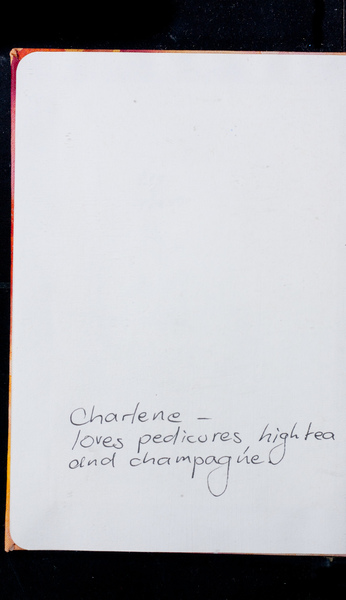 Charlene –
loves pedicures, high tea
and champagne.